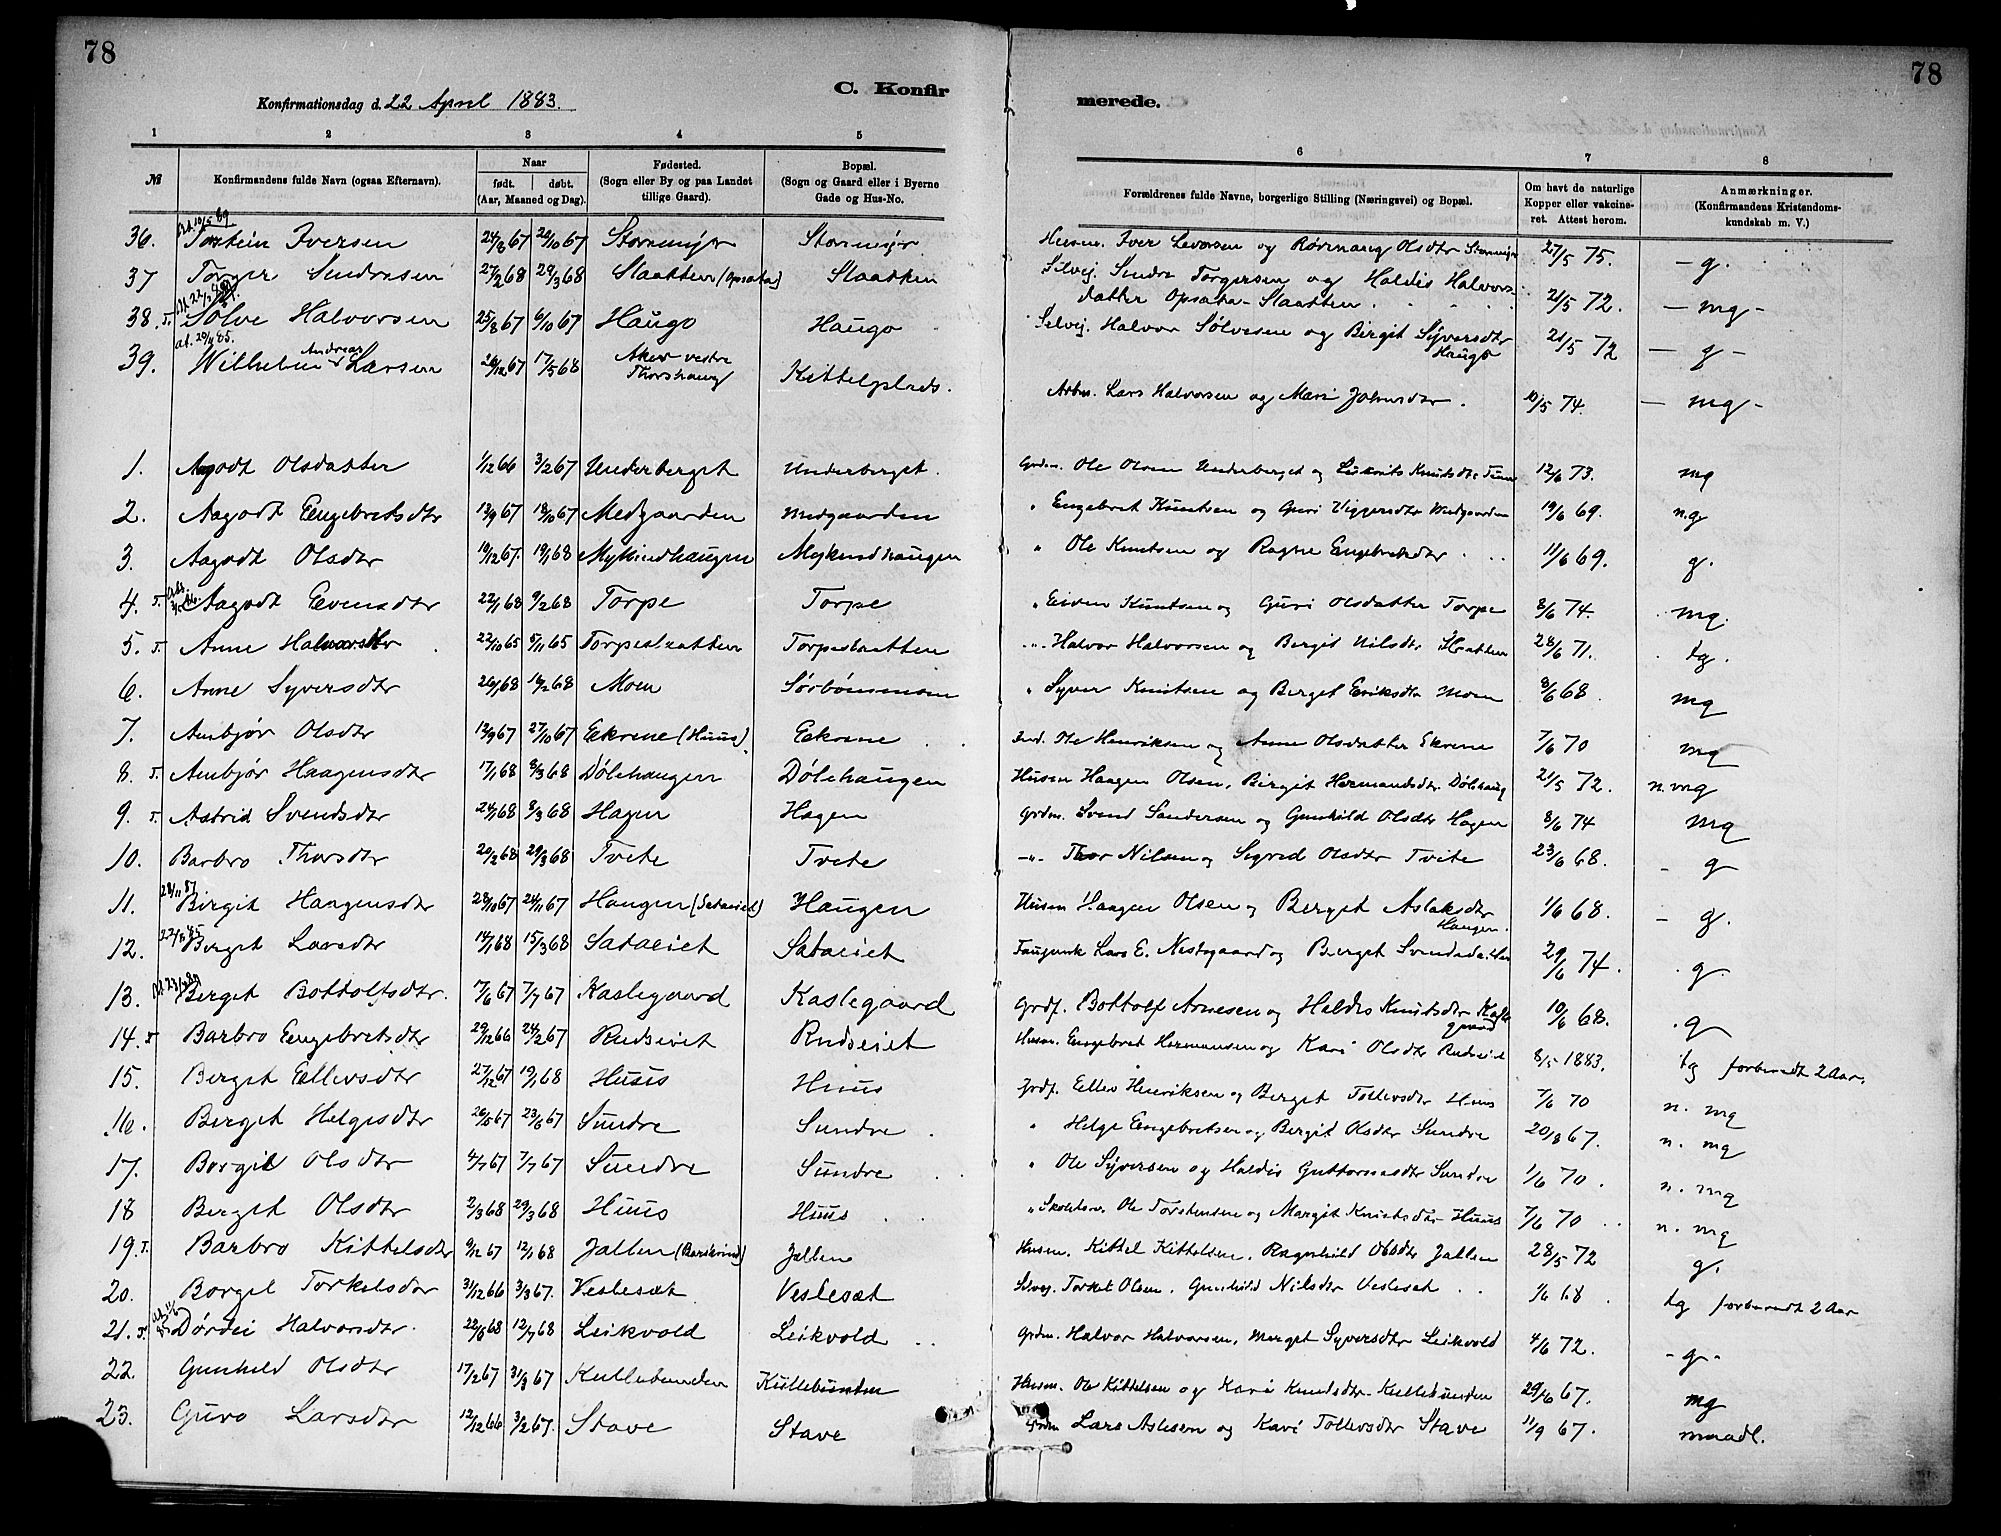 78
78
Konfirmationsdag d. 22 April 1883.
C. Konfir
merede.
1 2 3 4 5 6 7 8
№ Konfirmandens fulde Navn (ogsaa Efternavn). Naar født. døbt. (Aar, Maaned og Dag). Fødested. (Sogn eller By og paa Landet tillige Gaard). Bopæl. (Sogn og Gaard eller i Byerne Gade og Hus-No. Forældrenes fulde Navne, borgerlige Stilling (Næringsvei) og Bopæl. Om havt de naturlige Kopper eller vakcineret. Attest herom. Anmærkninger. (Konfirmandens Kristendomskundskab m. V.)
36. Iversen 24/8 67 20/10 67 Stormyr Stormyr Husm. Iver Levorsen og Olsdtr 27/5 75. - g.
37 Torger Sendresen 27/2 68 29/3 68 Slaatten (Opsata) Slaatten Selvej. Sendre Torgersen og Haldis Halvors datter Opsata-Slaatten 21/5 72. - mg -
38. T. Sølve Halvorsen 25/8 67 6/10 67 Haugo Haugo Selvej. Halvor Sølvesen og Birgit Syversdtr Haugo 21/5 72 - g -
39. Wilhelm Andreas Larsen 26/12 67 17/5 68 Aker vestre Thorshaug Kittelplads. Arbm. Lars Halvorsen og Mari Johnsdtr. 10/5 74. - mg -
1. Aagodt Olsdatter 1/12 66 3/2 67 Underberget Underberget. Grdm. Ole Olsen Underberget og Knutsdtr 12/6 73. mg
2. Aagodt Engebretsdtr 13/9 67 18/10 67 Medgaarden Medgaarden " Engebret Knutsen og Guri Viggersdtr Medgaarden 19/6 69. n.g
3. Aagodt Olsdtr 19/12 67. 19/1 68 Myklindhaugen " Ole Knutsen og Ragne Engebretsdtr 11/6 69. g.
4. T. Aagodt Evensdtr 22/1 68 9/2 68 Torpe Torpe " Eiven Knutsen og Guri Olsdatter Torpe 8/6 74. mg.
5. T. Anne Halvorsdtr 22/10 65 5/11 65 Torpeslaatten Torpeslaatten " Halvor Halvorsen og Bergit Nilsdtr Slaatten 28/6 71. tg.
6. Anne Syversdtr 26/1 68 16/2 68 Moen Sørbønsmoen " Syver Knutsen og Berget Eriksdtr Moen 8/6 68 mg
7. Ambjør Olsdtr 13/9 67 27/10 67 Eekrene (Huus). Eekrene Ind. Ole Henriksen og Anne Olsdatter Ekrene 7/6 70 mg
8. T. Ambjør Haagensdtr 17/1 68 8/3 68 Dølehaugen Dølehaugen Husm Haagen Olsen, Birgit Hermandsdtr Dølehaug 21/5 72. n. mg
9. T. Astrid Svendsdtr 24/1 68 8/3 68 Hagen Hagen Grdm. Svend Sandersen og Gunhild Olsdtr Hagen 8/6 74 mg
10. Barbro Thorsdtr 20/2 68 29/3 68 Tvete Tvete -"- Thor Nilsen og Sigrid Olsdtr Tvite 23/6 68. - g
11. Birgit Haagensdtr 28/10 67 24/11 67 Haugen (Sataeiet) Haugen Husm Haagen Olsen og Berget Aslaksdtr Haugen. 1/6 68. - g.
12. Berget Larsdtr 14/1 68 15/3 68 Sataeiet Sataeiet Lars E. Nestegaard og Berget 29/6 74. g.
13. Berget Bottolfsdtr. 7/6 67 7/7 67 Kaslegaard Kaslegaard Grdf. Bottolf Arnesen og Haldis Knutsdtr Kaslegaard 10/6 68. g
14. T Barbro Engebretsdtr 29/12 66 24/2 67 Rudseiet Rudseiet Husm. Engebret Hermansen og Kari Olsdtr Rudseiet 8/5 1883. tg forberedt 2 Aar.
15. Berget Ellevsdtr 27/12 67 19/1 68 Huus Huus Grdf. Eellev Henriksen og Berget Tollevsdtr Huus 7/6 70 n. mg
16. Berget Helgesdtr 26/5 67 23/6 67 Sundre Sundre " Helge Engebretsen og Bergit Olsdtr Sundre 20/8 67. n. mg
17. Borgil Olsdtr 4/7 67 7/7 67 Sundre Sundre " Ole Syversen og Haldis Guttormsdtr Sundre 1/6 70. n. mg
18 Berget Olsdtr 2/3 68 29/3 68 Huus Huus " Ole Torstensen og Margit Knutsdtr Huus 7/6 70 n. mg
19. T. Barbro Kittelsdtr 9/12 67 12/1 68 Jallen Jallen Husm. Kittel Kittelsen, Ragnhild Olsdtr Jallen 28/5 72 g.
20. Borgil Torkelsdtr 31/12 66 3/3 67. Veslesæt Veslesæt Selvej. Torkel Olsen, Gunhild Nilsdtr Veslesæt 1/6 68 tg forberedt 2 Aar
21. T. Dørdei Halvorsdtr. 22/5 68 12/7 68 Leikvold Leikvold Grdm. Halvor Halvorsen, Marget Syversdtr Leikvold 4/6 72. - g -
22. Gunhild Olsdtr 17/2 67 31/3 67 Kullebunden Kullebunden Husm. Ole Kittelsen og Kari Knudsdtr Kullebunden 29/6 67. mg
23. Guro Larsdtr 12/12 66 3/2 67. Stave Stave Grdm Lars Aslesen og Kari Tollevsdtr Stave 11/9 67. maadl.